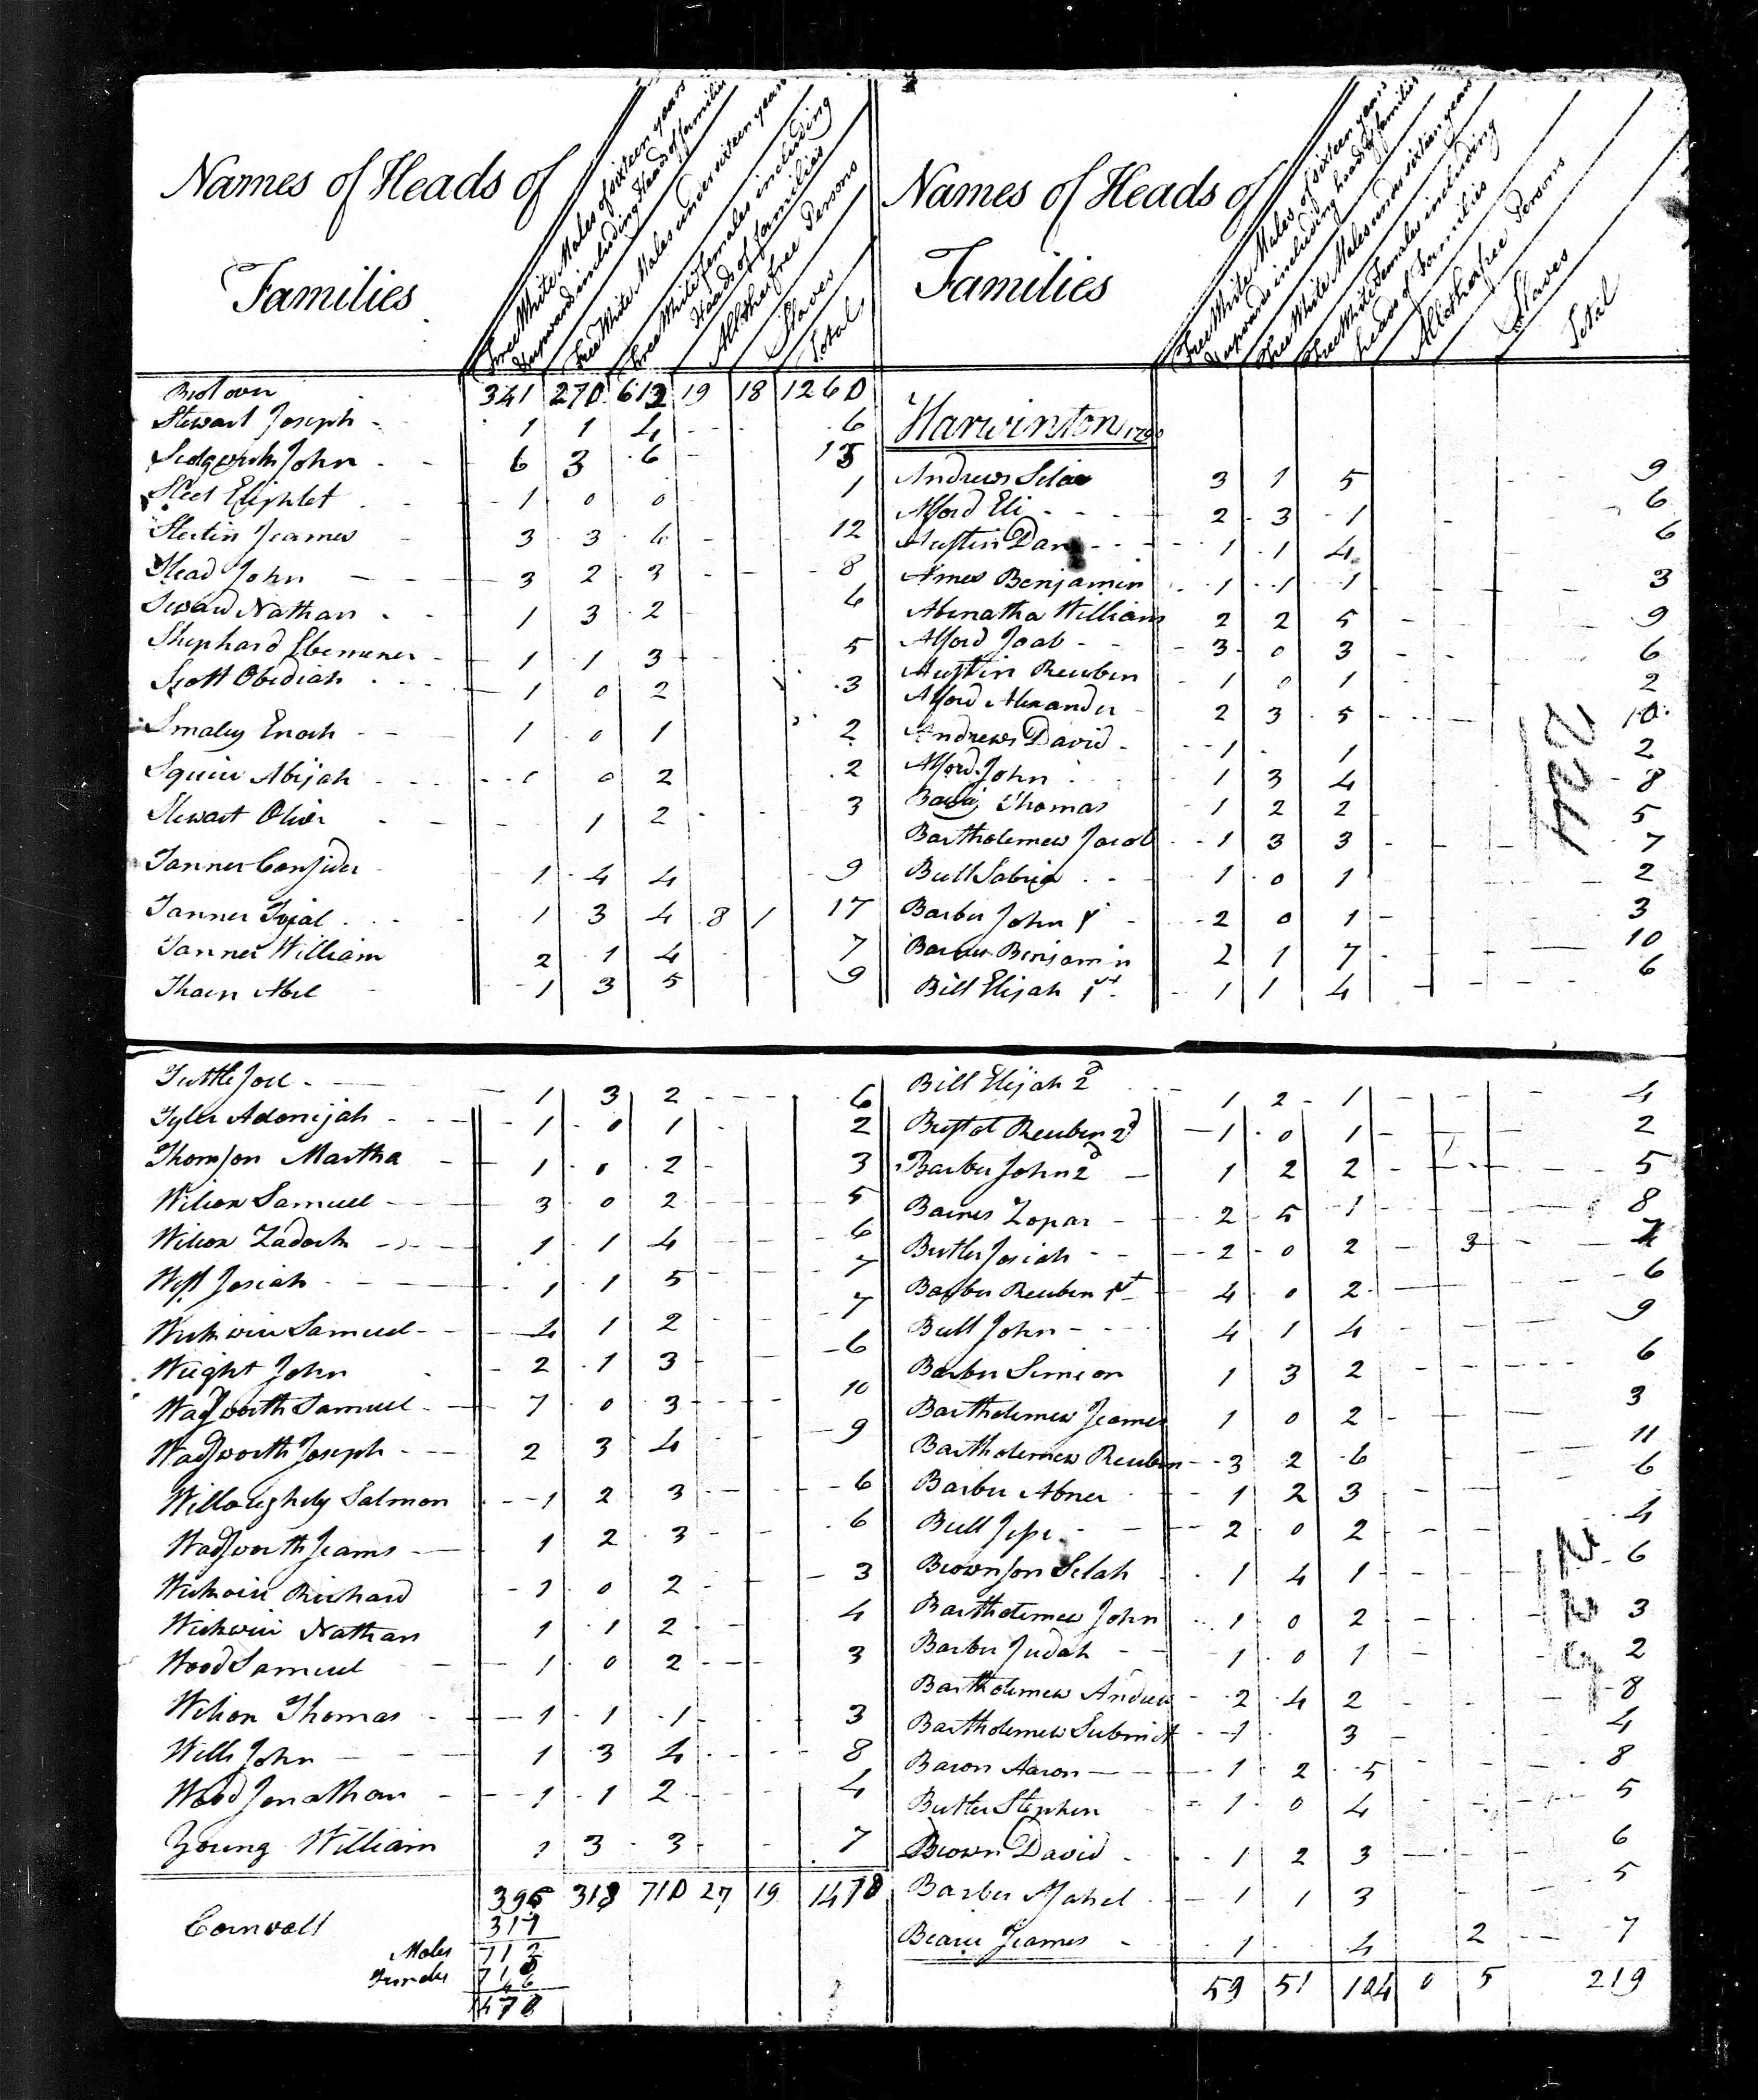 Names of Heads of
Families
Free White Males of sixteen years
& upward including Heads of families
Free White Males under sixteen years
Free White Females including
Heads of families
All other free Persons
Slaves
Total
Brot over 341 270 612 19 18 1260
Stewart Joseph 1 1 4 6
John 6 3 6 15
Eliphlet 1 0 0 1
Jeames 3 3 4 12
John 3 2 3 8
Seward Nathan 1 3 2 6
Shephard Ebenezer 1 1 3 5
Scott Obediah 1 0 2 3
Smaley Enoch 1 0 1 2
Squier Abijah 0 2 2
Stewart Oliver 1 2 3
Tanner Consider 1 4 4 9
Tanner Tryal 1 3 4 8 1 17
Tanner William 2 1 4 7
Abel 1 3 5 9
Tuttle Joel 1 3 2 6
Tyler Adonijah 1 0 1 2
Thomson Martha 1 0 2 3
Wilson Samuel 3 0 2 5
Wilson Zadock 1 1 4 6
West Josiah 1 1 5 7
Wickwire Samuel 4 1 2 7
Wright John 2 1 3 6
Wadsworth Samuel 7 0 3 10
Wadsworth Joseph 2 3 4 9
Willoughby Salmon 1 2 3 6
Wadsworth Jeams 1 2 3 6
Wickwire Richard 1 0 2 3
Wickwire Nathan 1 1 2 4
Wood Samuel 1 0 2 3
Wilson Thomas 1 1 1 3
Wells John 1 3 4 8
Wood Jonathan 1 1 2 4
Young William 1 3 3 7
318 710 27 19 1470
Cornwall
Males 712
Females
Names of Heads of
Families
Free White Males of sixteen years
& upwards including heads of families
Free White Males under sixteen years
Free White Females including
heads of families
All other free Persons
Slaves
Total
Harwinton 1790
Andrews 3 1 5 9
Alford Eli 2 3 1 6
Austin Dan 1 1 4 6
Ames Benjamin 1 1 1 3
Abernatha William 2 2 5 9
Alford Joab 3 0 3 6
Austin Reuben 1 0 1 2
Alford Alexander 2 3 5 10
Andrews David 1 1 2
Alford John 1 3 4 8
Thomas 1 2 2 5
Bartholemew Jacob 1 3 3 7
Bull Sabria 1 0 1 2
Barber John 1st 2 0 1 3
Benjamin 2 1 7 10
Bill Elijah 1st 1 1 4 6
Bill Elijah 2d 1 2 1 4
Reuben 2d 1 0 1 2
Barber John 2d 1 2 2 5
Barnes Zopar 2 5 1 8
Butler Josiah 2 0 2 3 7
Barber Reuben 1st 4 0 2 6
Bull John 4 1 4 9
Barber Simeon 1 3 2 6
Bartholemew Jeames 1 0 2 3
Bartholemew Reuben 3 2 6 11
Barber Abner 1 2 3 6
Bull Jesse 2 0 2 4
Brownson Selah 1 4 1 6
Bartholemew John 1 0 2 3
Barber Judah 1 0 1 2
Bartholemew Andrew 2 4 2 8
Bartholemew Submit 1 3 4
Bacon Aaron 1 2 5 8
Butler Stephen 1 0 4 5
Brown David 1 2 3 6
Barber Mahel 1 1 3 5
Jeames 1 4 2 7
59 51 104 0 5 219